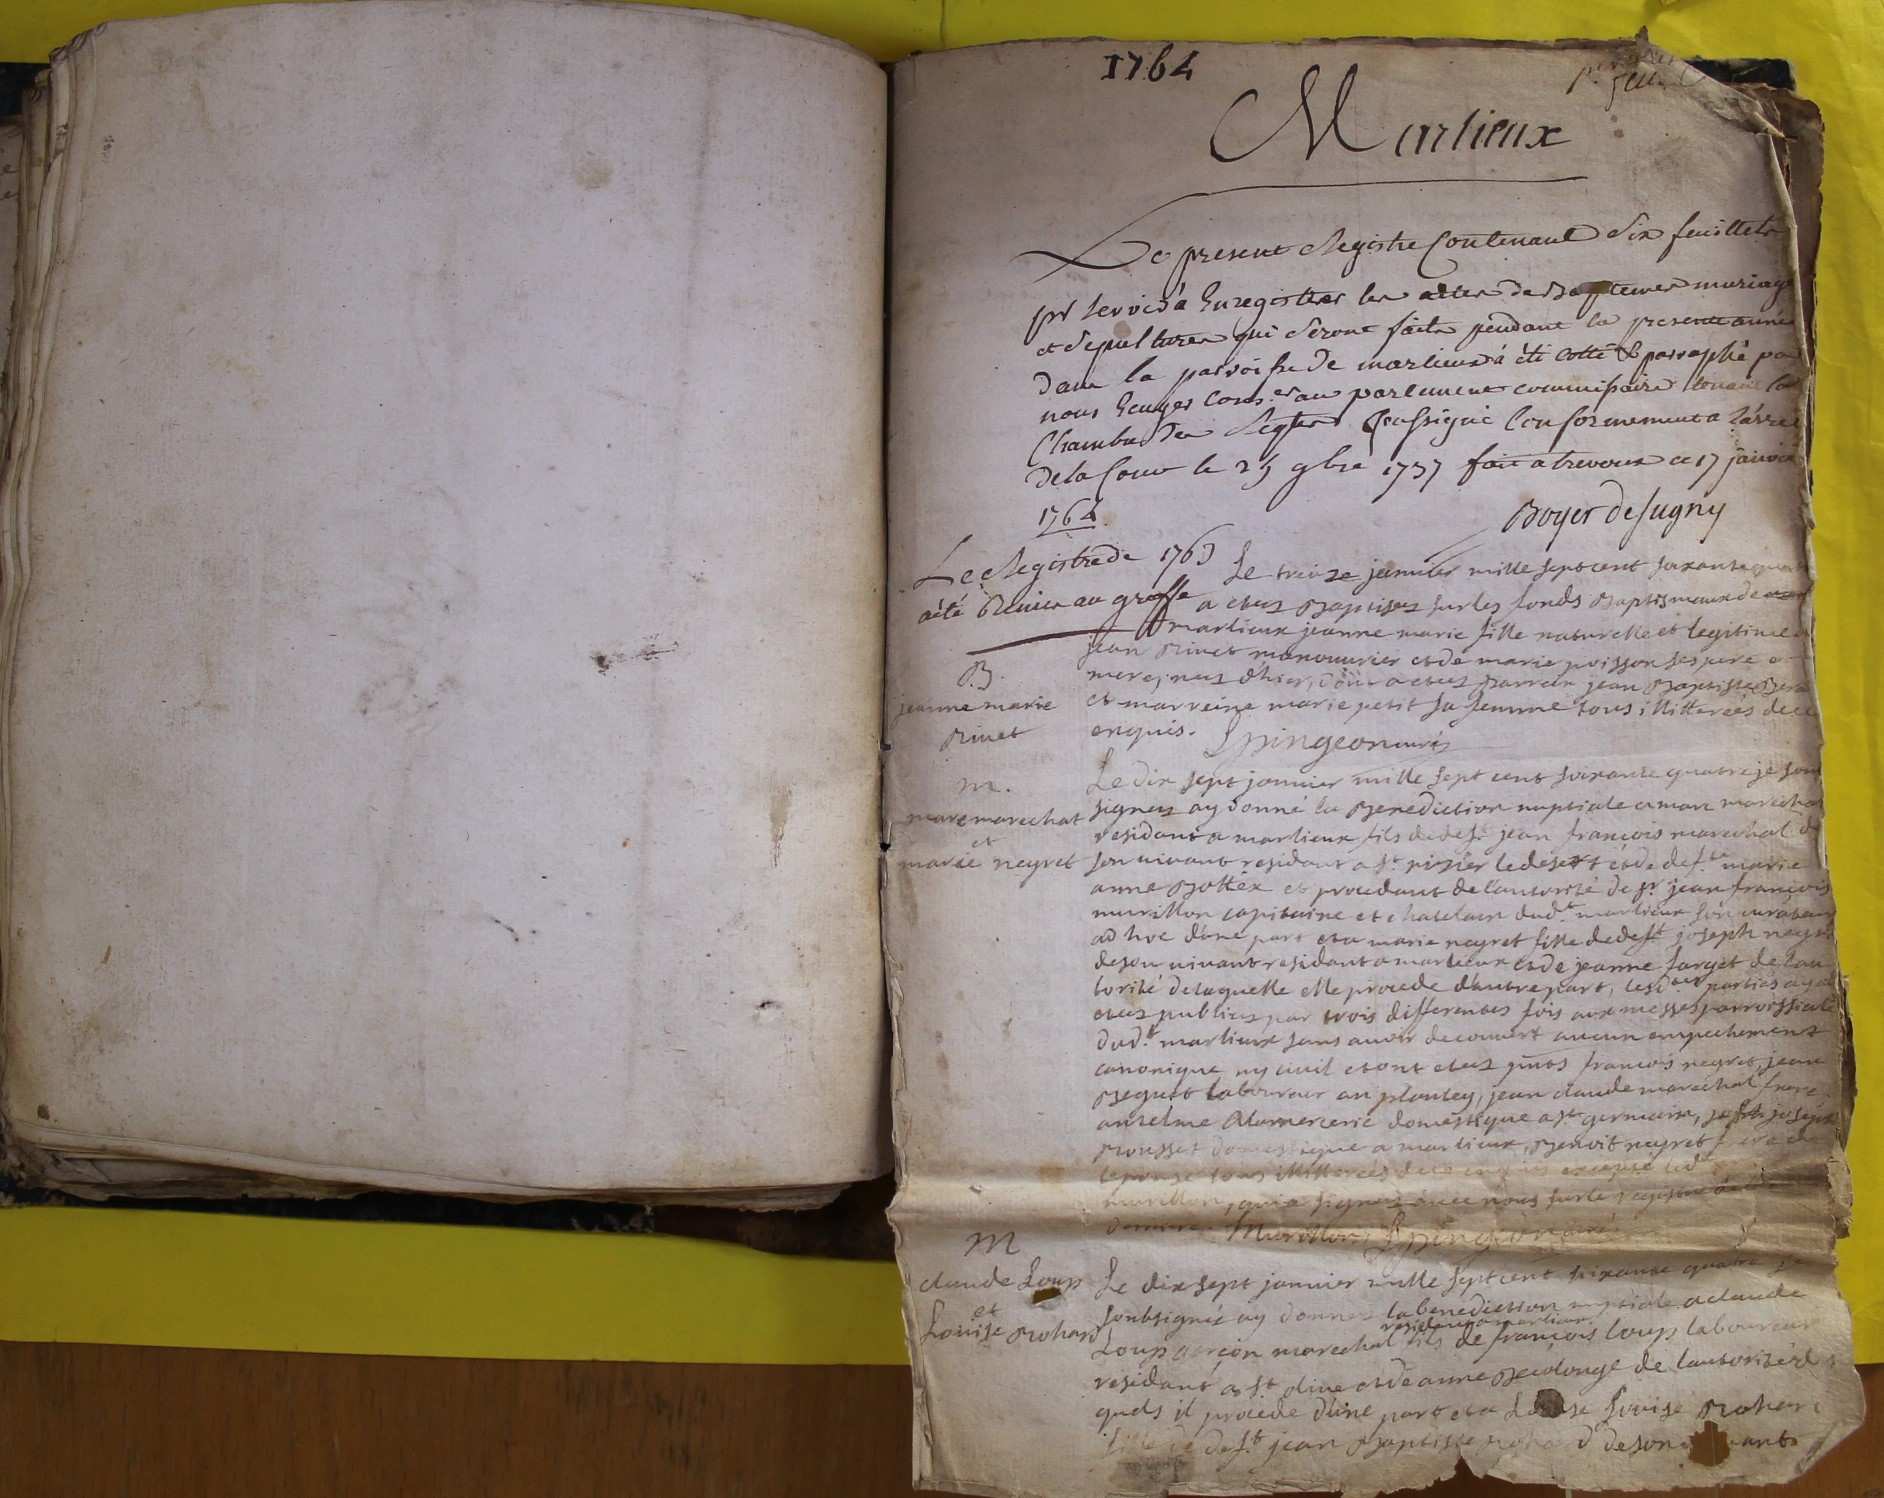 1764
Marlieux
Le present Registre Contenant Six feuillets
pr servir à Enregistrer les actes de Baptemes mariage
et sepultures qui seront faits pendant la presente année
dans la parroisse de marlieux à été cotté & parraphé par
nous Ecuyer Cons.er au parlement commissaire tenant la
Chambre des Reqtes soussigné Conformement a l'arret
de la Cour le 25 9bre 1737 fait a trevoux ce 17 janvier
1764
Boyer de Sugny
Le Registre de 1763
a été Remis au greffe
B.
jeanne marie
Rivet
Le treize janvier mille sept cent soixante quat
a eteз Baptiseз sur les fonds Baptismaux de
marlieux jeanne marie fille naturelle et legitime
jean Rivet manouvrier et de marie poisson ses pere et
mere, neeз d'hier, dont a eteз parrein jean Baptiste
et marreine marie petit sa femme tous illitterés de ce
enquis. Epingeon curé
m.
marc marechal
et
marie neyret
Le dix sept janvier mille sept cent soixante quatre je sous
signeз ay donné la Benediction nuptiale a marc marechal
residant a marlieux fils de deft jean françois marechal de
son vivant residant a st. nizier le desert et de defte marie
anne Bottex et procedant de l'autorité de sr. jean françois
murillon capitaine et chatelain dudt marlieux son curateur
ad hoc d'une part et a marie neyret fille de deft joseph neyret
de son vivant residant a marlieux et de jeanne farget de l'au
torité de laquelle elle procede d'autre part, lesdtes parties ayant
eteeз publieeз par trois differentes fois aux messes parroissiale
dudt. marlieux sans avoir decouvert aucun empechement
canonique ny civil et ont eteз pnts françois neyret, jean
Beguet laboureur au plantey, jean claude marechal frere
anselme Alamercerie domestique a st germain, joseph
Rousset domestique a marlieux, Benoit neyret frere de
l'epouse tous illitterés de ce enquis excepté ledt
murillon, qui a signeз avec nous sur le registre
Murillon, Epingeon curé
M
claude Loup
et
Louise Rohard
Le dix sept janvier mille sept cent soixante quatre je
soubsigné ay donneз la benediction nuptiale a claude
residant a marlieux
Loup garçon marechal fils de françois loup laboureur
residant a st. olive et de anne Becolonge de l'autorité des
quels il procede d'une part et a Louise Rohard
fille de deft jean Baptiste Rohard de son vivant